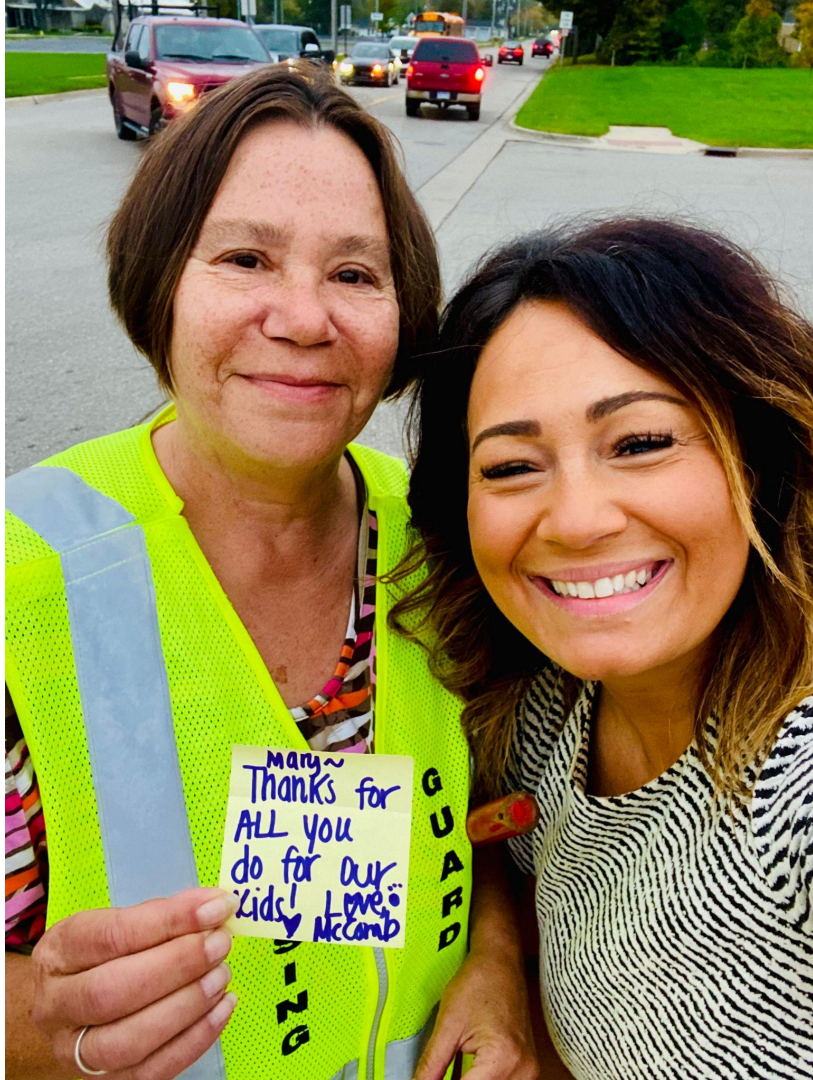 Mary~
Thanks for
ALL you
do for our
kids! Love,
McComb
GUARD
SING